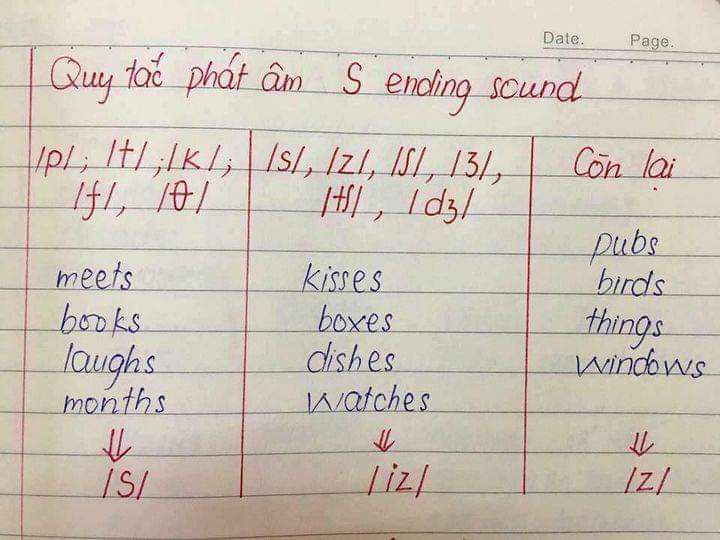 Date. Page.
Quy tắc phát âm S ending sound
/p/; /t/; /k/; /f/, /θ/
meets
books
laughs
months
⇓
/s/
/s/, /z/, /ʃ/, /ʒ/,
/tʃ/, /dʒ/
kisses
boxes
dishes
watches
⇓
/iz/
Còn lại
pubs
birds
things
windows
⇓
/z/